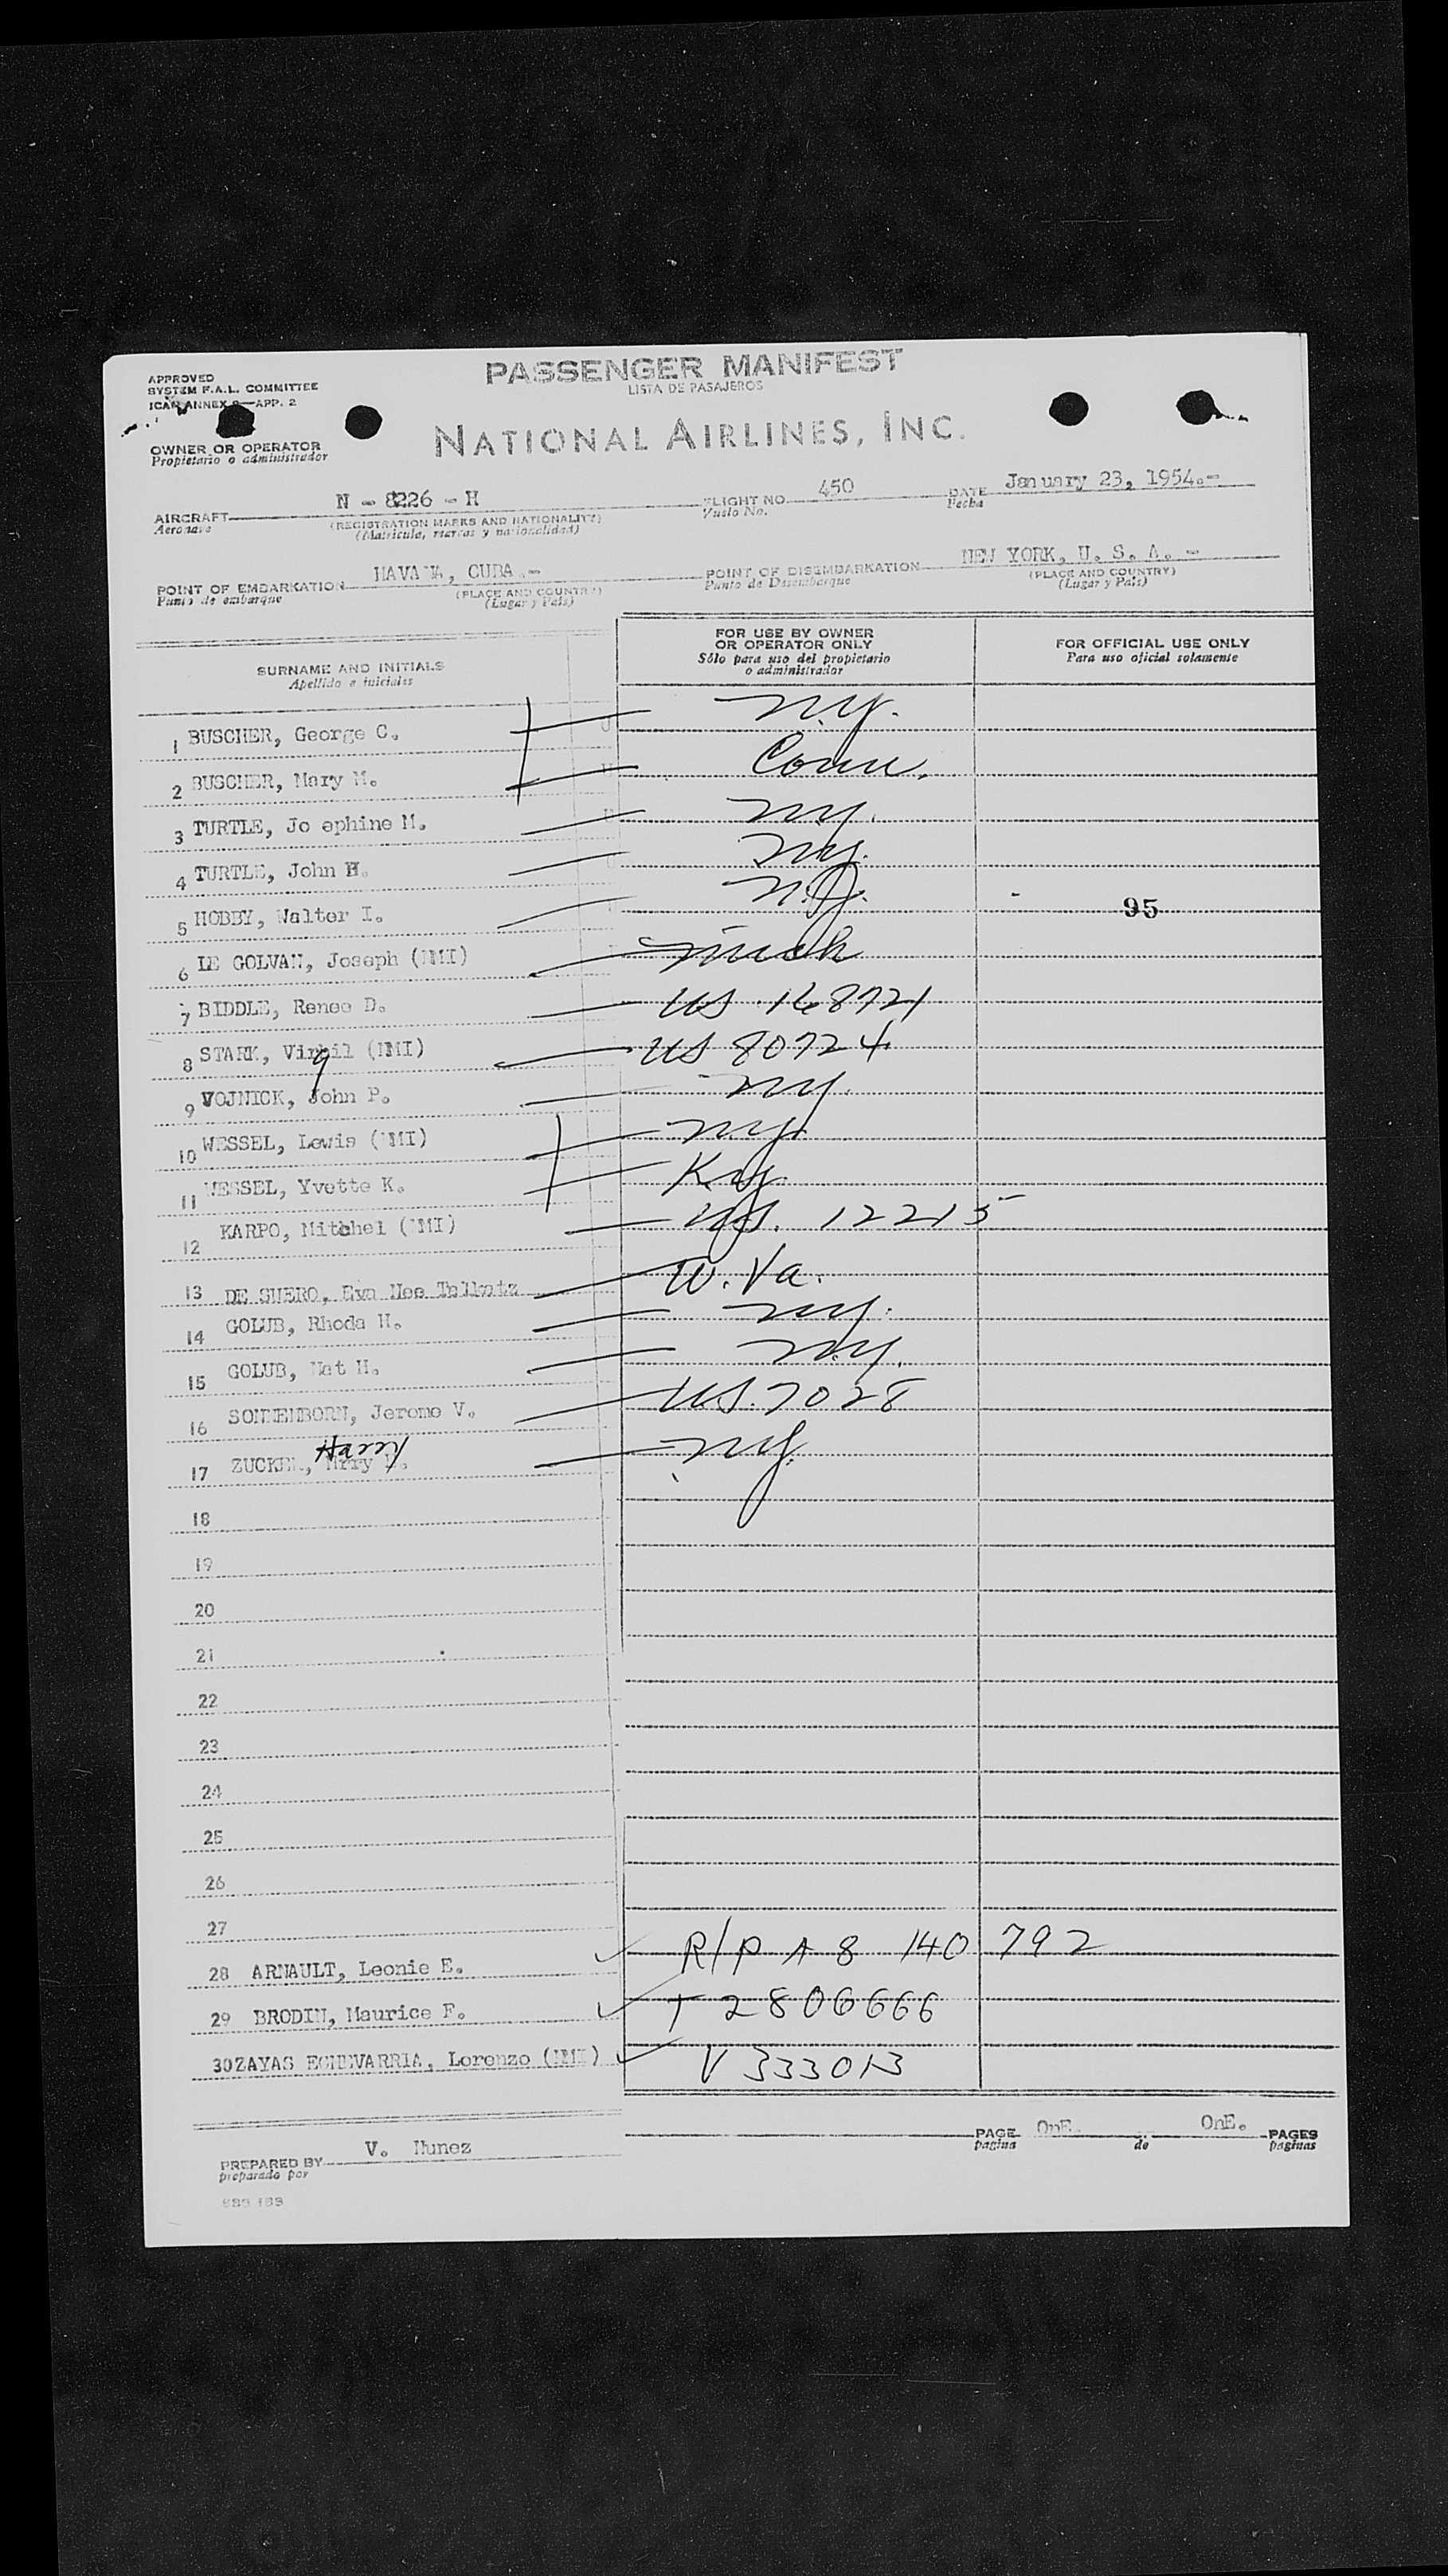 APPROVED
SYSTEM F.A.L. COMMITTEE
ICAO ANNEX 9—APP. 2
PASSENGER MANIFEST
LISTA DE PASAJEROS
NATIONAL AIRLINES, INC.
OWNER OR OPERATOR
Propietario o administrador
AIRCRAFT N - 8226 - H FLIGHT NO. 450 DATE January 23, 1954.-
Aeronave (REGISTRATION MARKS AND NATIONALITY) Vuelo No. Fecha
(Matricula, marcas y nacionalidad)
POINT OF EMBARKATION HAVANA, CUBA.- POINT OF DISEMBARKATION NEW YORK, U. S. A. -
Punto de embarque (PLACE AND COUNTRY) Punto de Desembarque (PLACE AND COUNTRY)
(Lugar y Pais) (Lugar y Pais)
SURNAME AND INITIALS
Apellido e iniciales
FOR USE BY OWNER
OR OPERATOR ONLY
Sólo para uso del propietario
o administrador
FOR OFFICIAL USE ONLY
Para uso oficial solamente
1 BUSCHER, George C. N.Y.
2 BUSCHER, Mary M. Conn.
3 TURTLE, Jo ephine M. N.Y.
4 TURTLE, John H. N.Y.
5 HOBBY, Walter I. N.J. - 95
6 LE GOLVAN, Joseph (NMI) Mich
7 BIDDLE, Renee D. US 168721
8 STARK, Virgil (NMI) US 80724
9 VOJNICK, John P. N.Y.
10 WESSEL, Lewis (NMI) N.Y.
11 WESSEL, Yvette K. Ky.
12 KARPO, Mitchel (NMI) US. 12215
13 DE SUERO, Eva Nee W. Va.
14 GOLUB, Rhoda H. N.Y.
15 GOLUB, Nat H. N.Y.
16 SONNENBORN, Jerome V. US. 7028
17 ZUCKER, Harry N.Y.
18
19
20
21
22
23
24
25
26
27
28 ARNAULT, Leonie E. R/P A 8 140 792
29 BRODIN, Maurice F. T 2806666
30 ZAYAS ECHEVARRIA, Lorenzo (NMI) V 333013
PREPARED BY V. Nunez PAGE OnE. OnE. PAGES
preparado por pagina de paginas